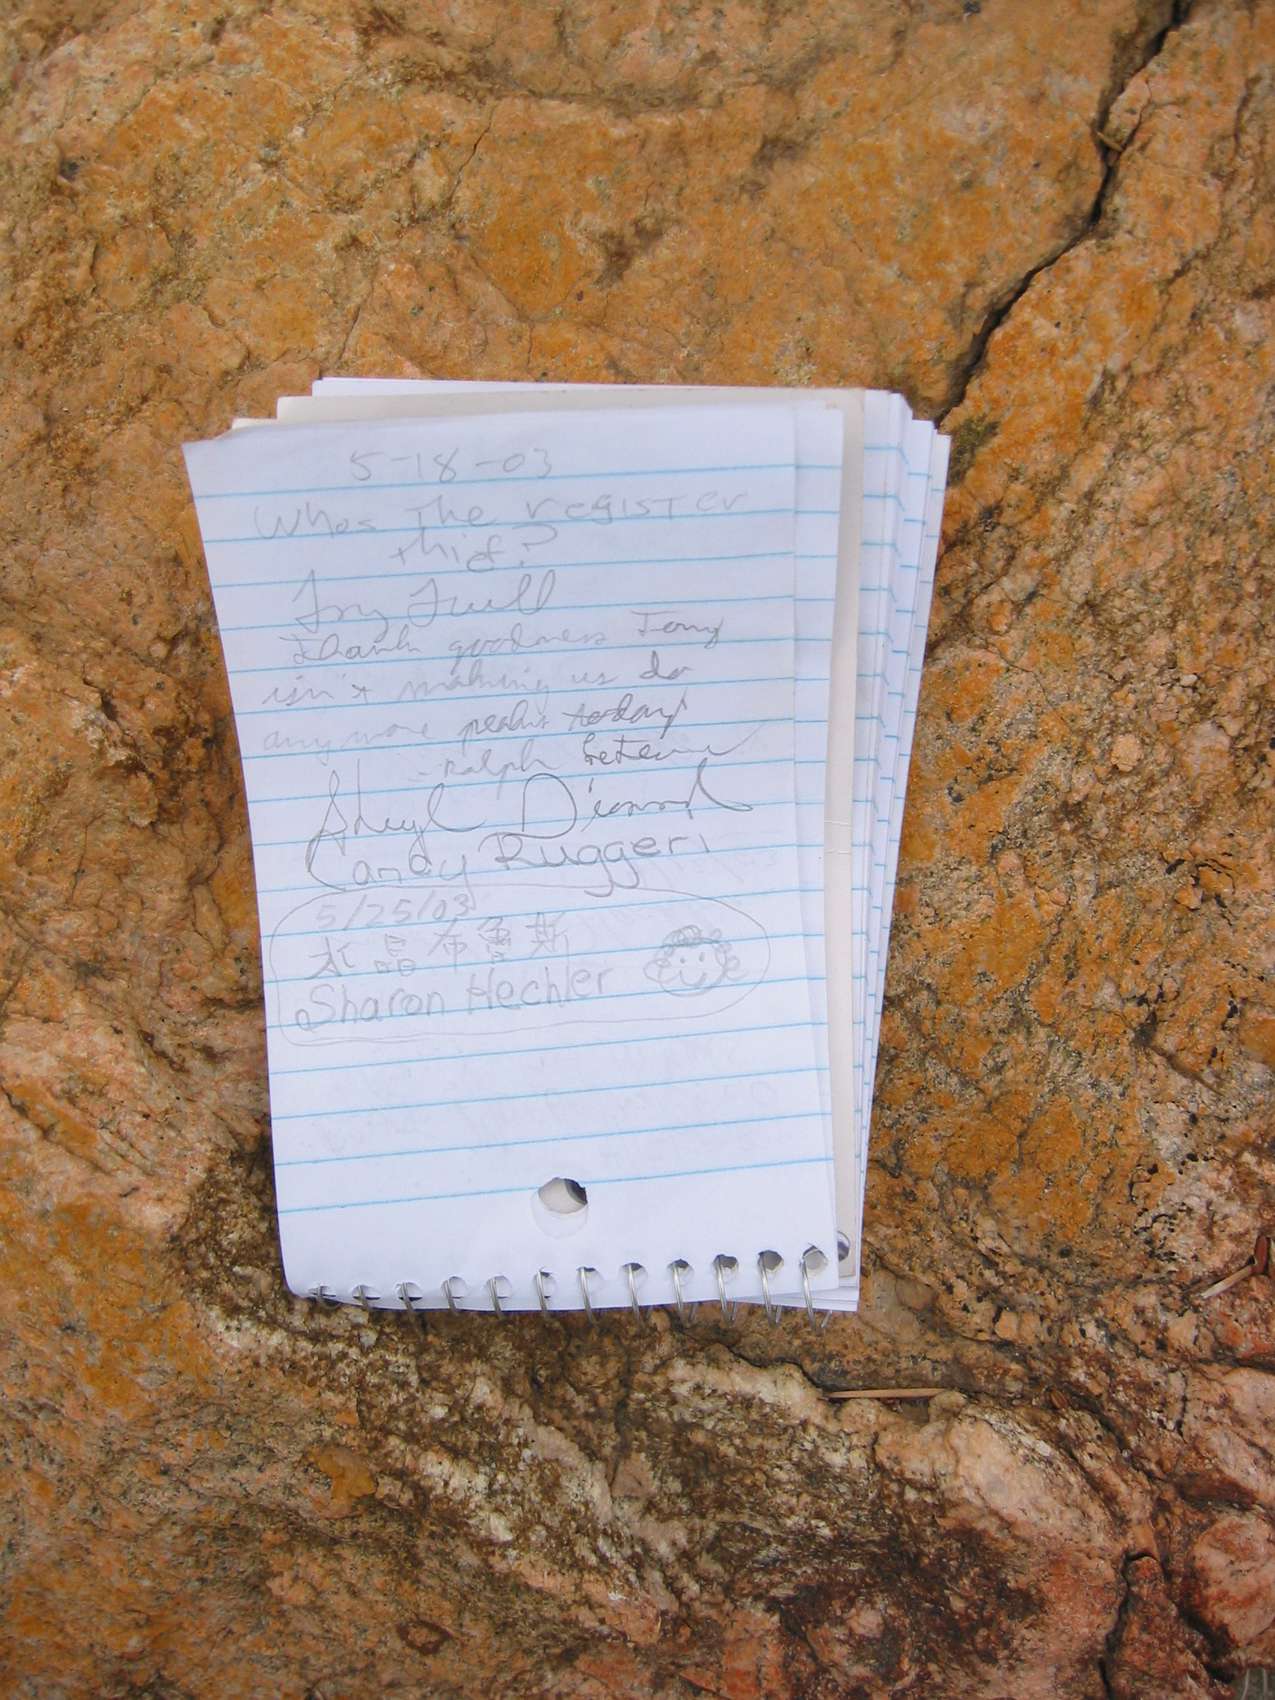 5-18-03
Whos The regisTer
thief?
Thank goodness Tony
isn't making us do
any more peaks today!
- Ralph
Sheryl Diamond
Candy Ruggeri
5/25/03
水晶布魯斯
Sharon Hechler